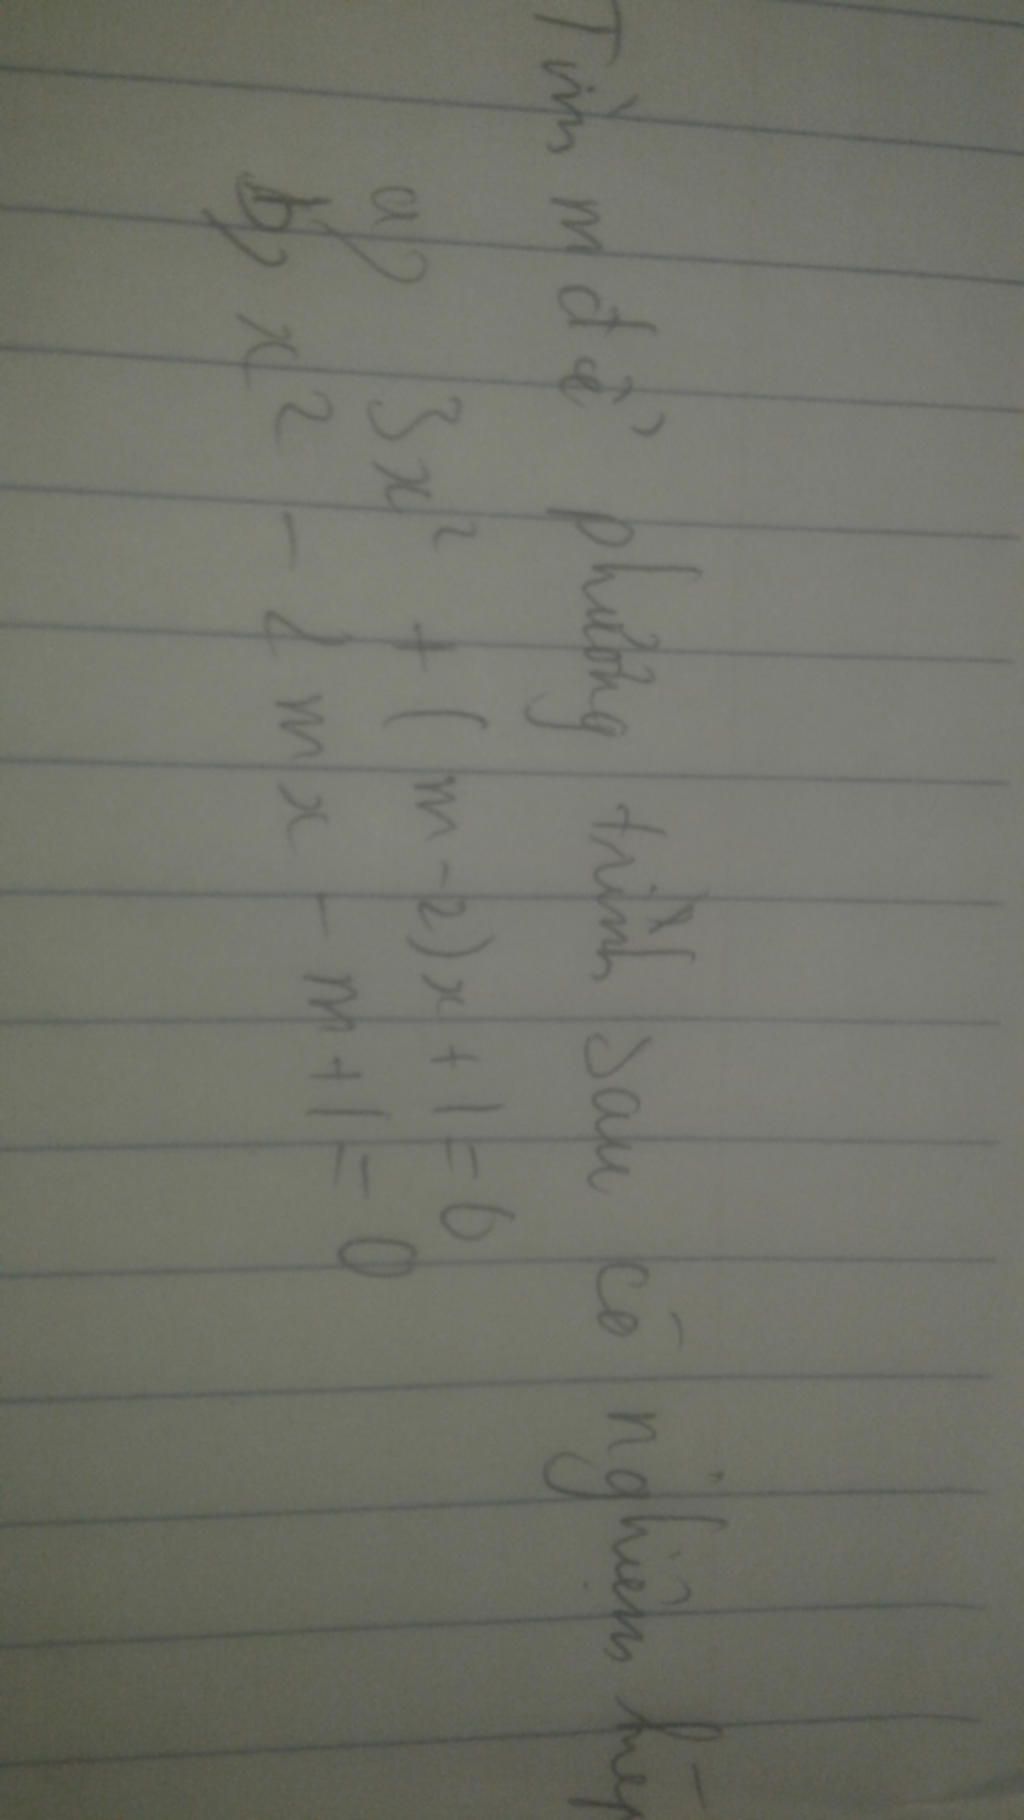 Tìm m để phương trình sau có nghiệm kép
a) 3x² + (m - 2)x + 1 = 0
b) x² - 2mx - m + 1 = 0